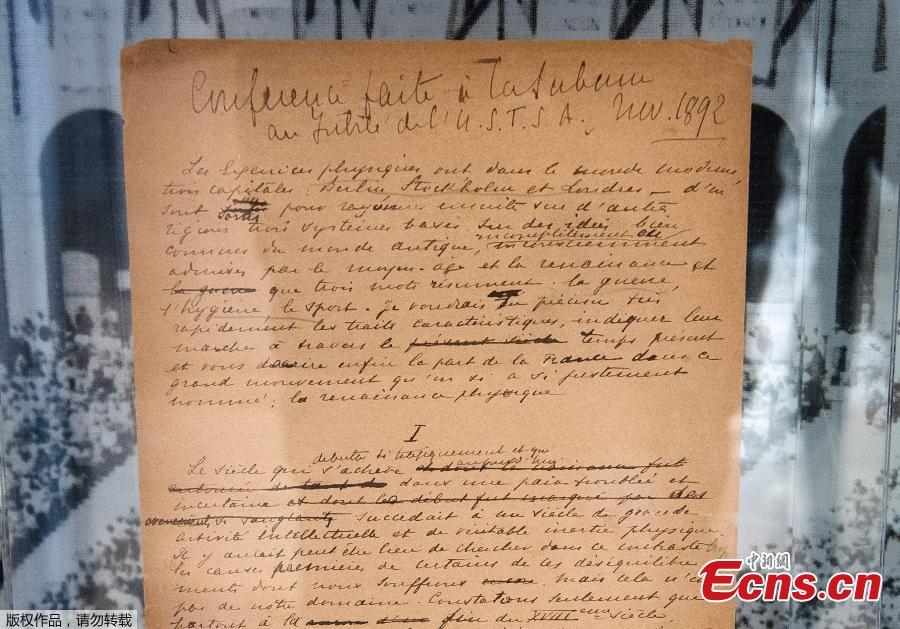 Conférence faite à la Sorbonne
au Jubilé de l'U.S.F.S.A. Nov. 1892
Les Exercices physiques ont dans le monde moderne
trois capitales : Berlin Stockholm et Londres — d'où
sont sortis pour
trois systèmes basés sur des idées bien
connues du monde antique, incomplètement ou inconsciemment
admises par le moyen-âge et la renaissance et
la guerre que trois mots résument : la guerre,
l'hygiène, le sport. Je voudrais préciser très
rapidement les traits caractéristiques, indiquer leur
marche à travers le présent siècle temps présent
et vous dire enfin la part de la France dans ce
grand mouvement qu'on a si justement
nommé : la renaissance physique
I
débuté si tragiquement et qui
Le siècle qui s'achève
dans une paix troublée et
incertaine et dont le début fut marqué par des
si sanglants succédait à un siècle de grande
activité intellectuelle et de véritable inertie physique
Il y aurait peut être lieu de chercher dans ce contraste
les causes premières de certains de ces déséquilibre
ments dont nous souffrons encore. mais cela n'e
pas de notre domaine. Constatons seulement que
partout à la fin du XVIIIeme siècle,
中新網
Ecns.cn
版权作品，请勿转载